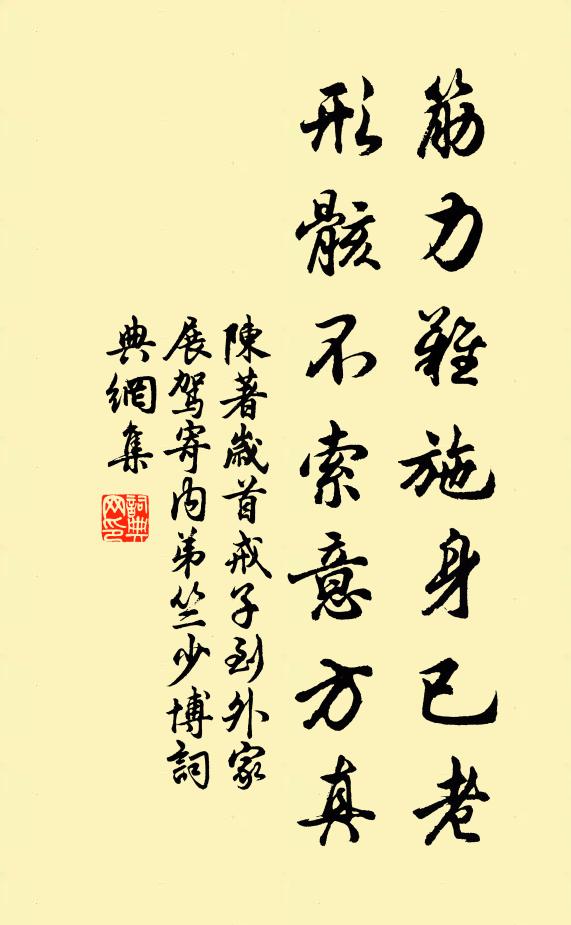 筋力難施身已老
形骸不索意方真
陳著歲首戒子到外家
展駕寄內弟竺少博詞
典網集
詞典
网印